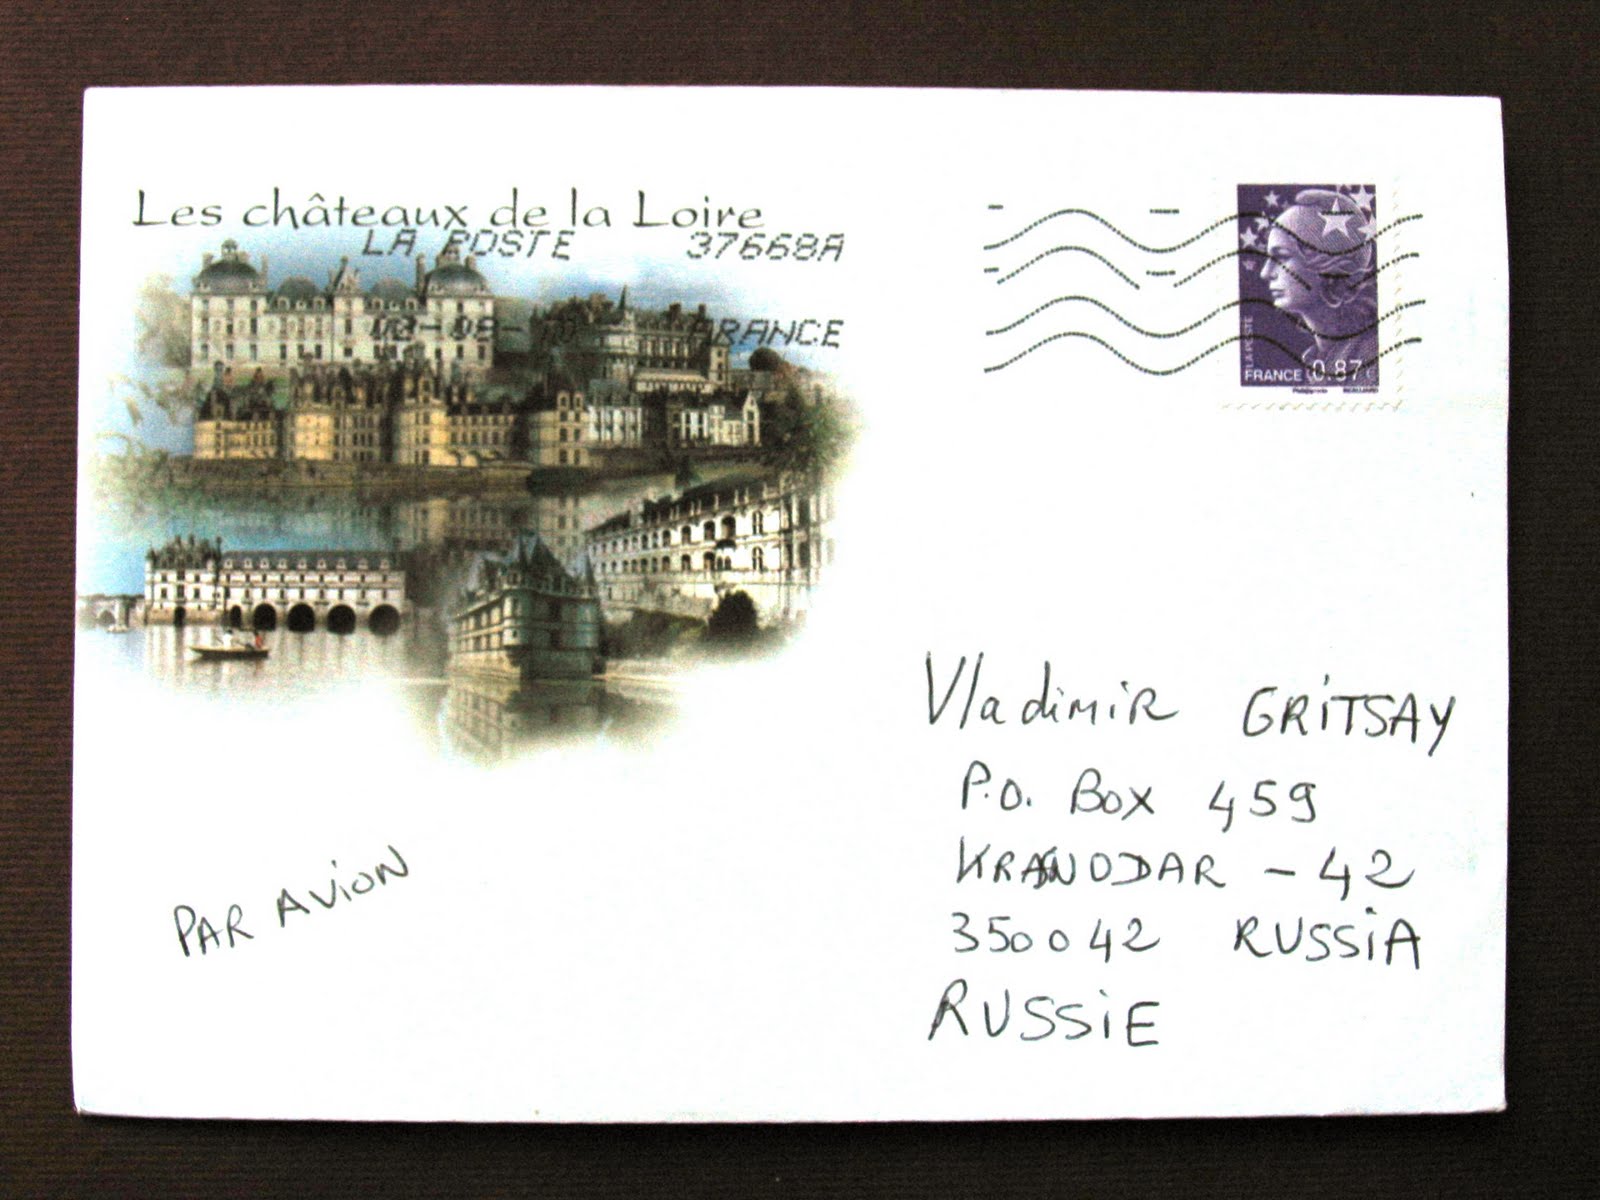 Les châteaux de la Loire
LA POSTE 37668A
FRANCE
LA POSTE
FRANCE 0.87 €
Vladimir GRITSAY
P.O. Box 459
KRASNODAR - 42
350042 RUSSIA
RUSSIE
PAR AVION